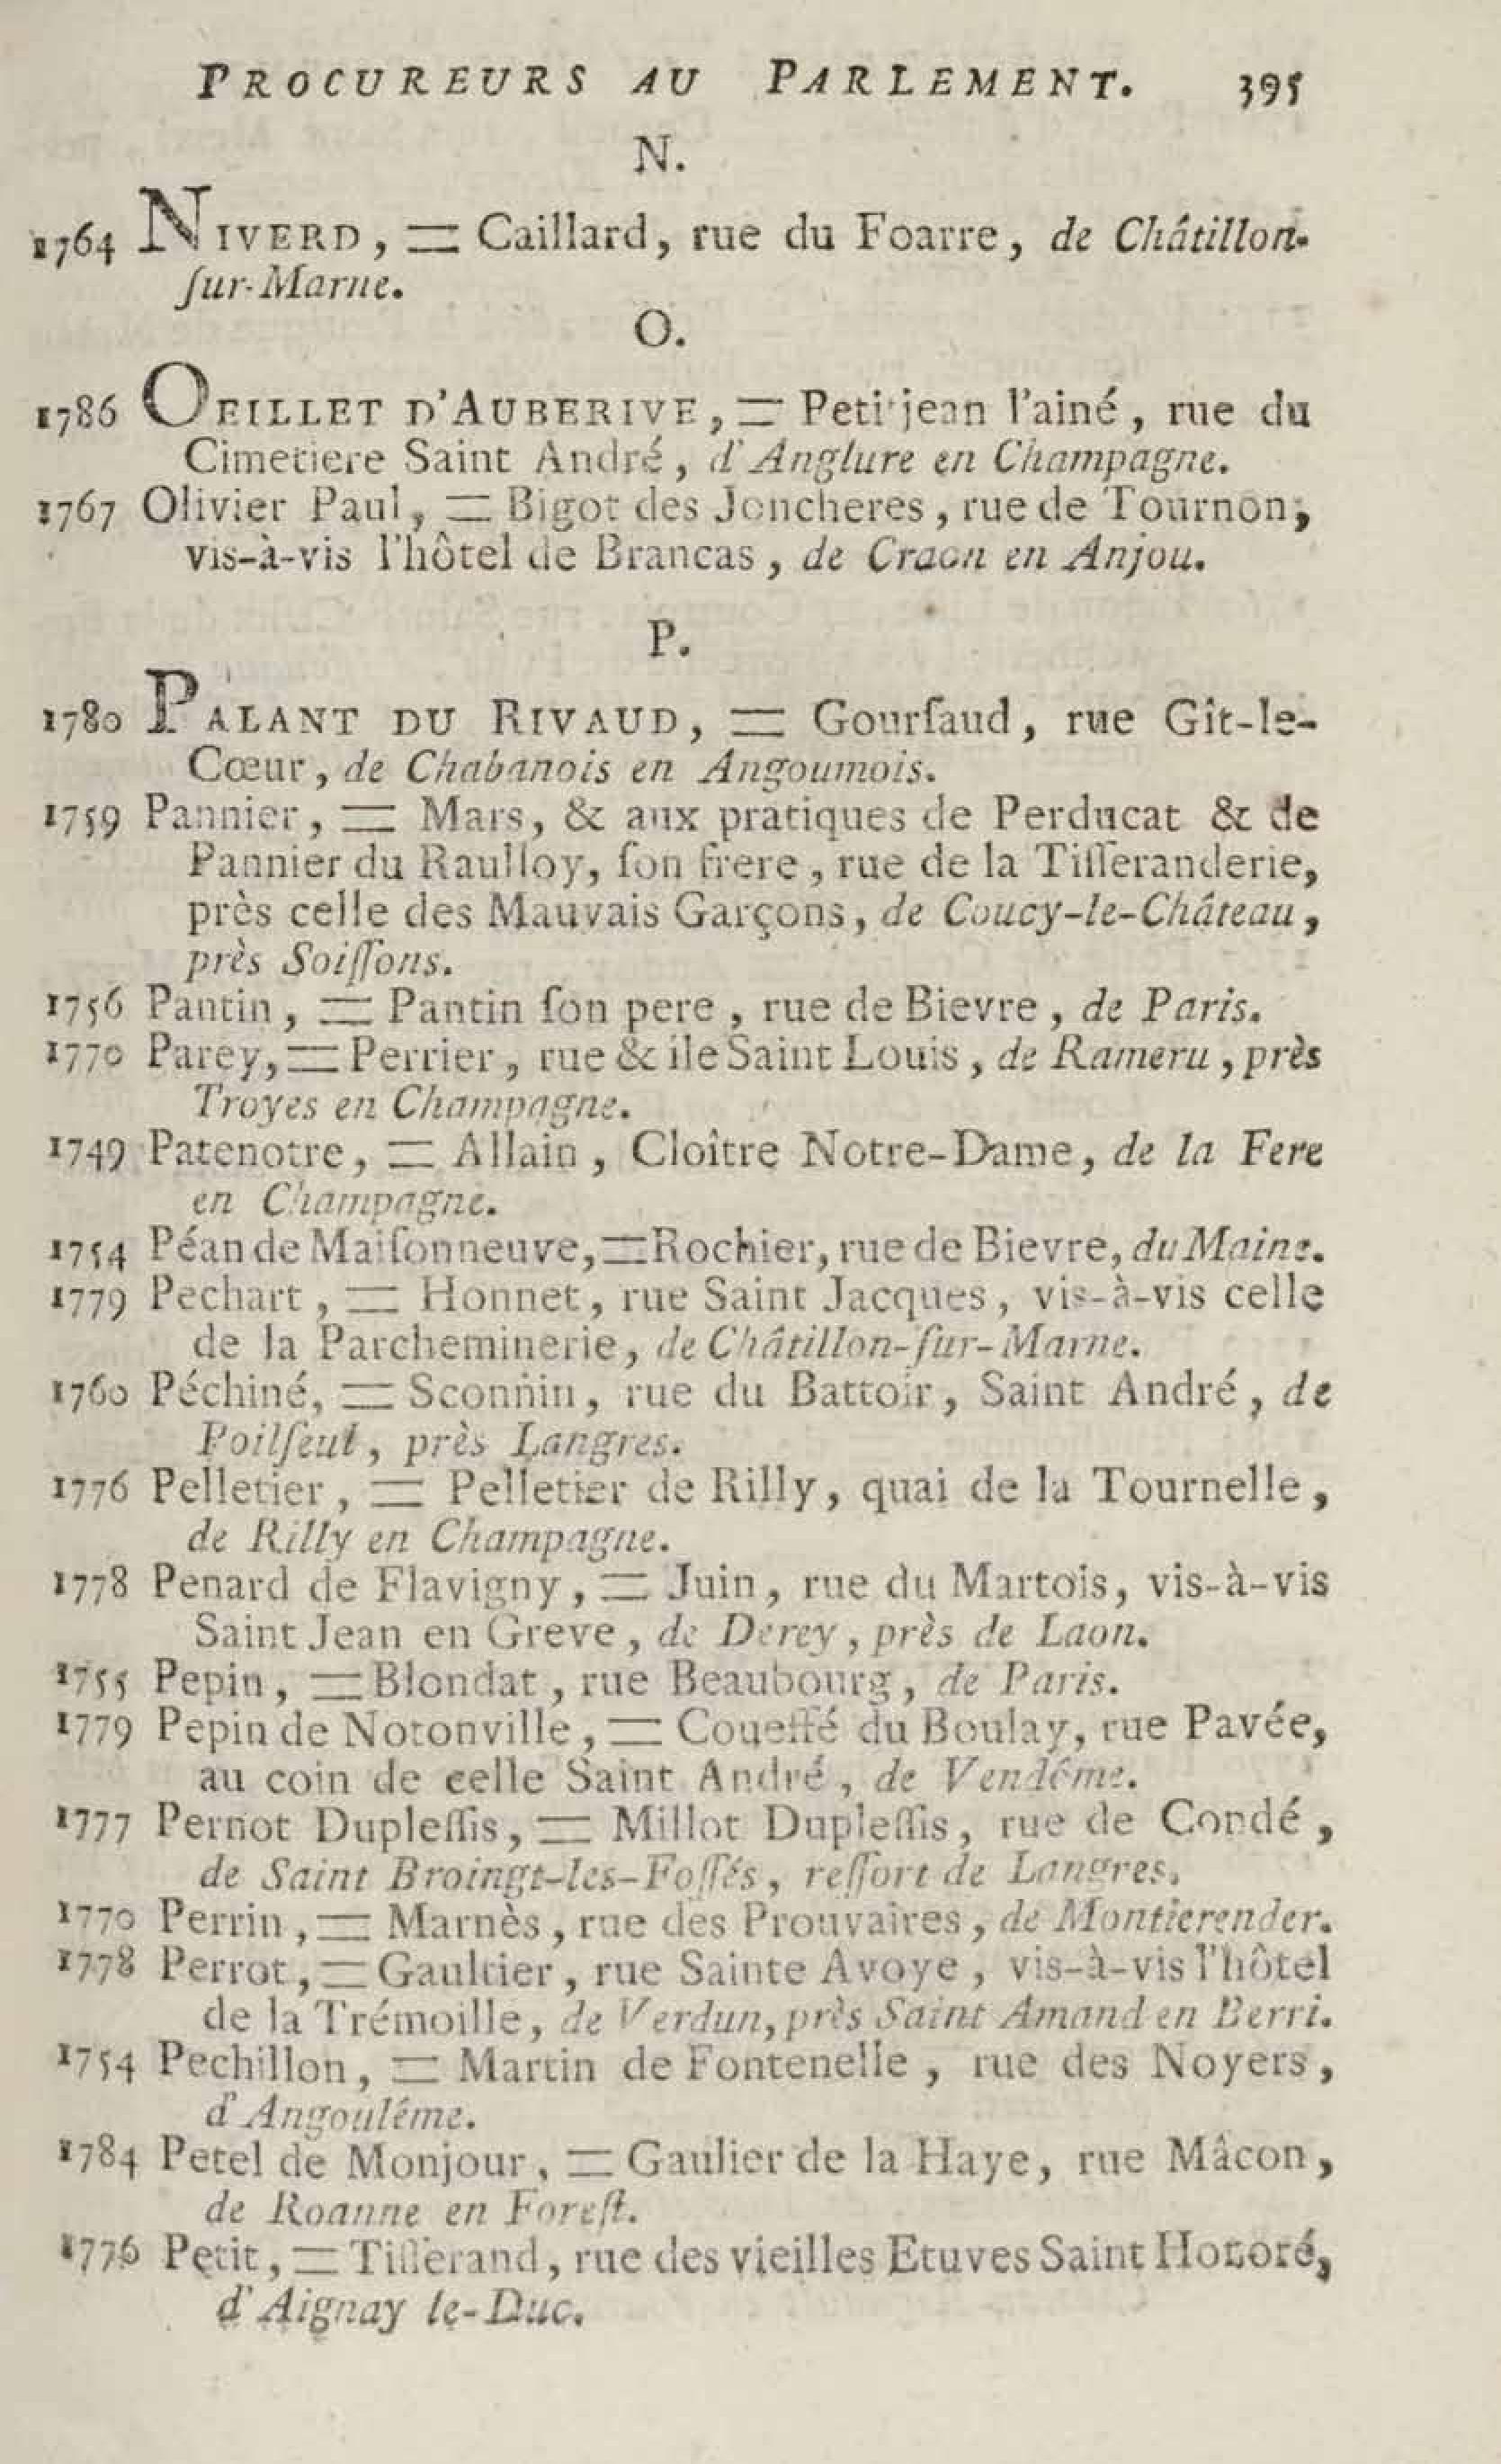 PROCUREURS AU PARLEMENT. 395
N.
1764 NIVERD, = Caillard, rue du Foarre, de Châtillon-
ſur-Marne.
O.
1786 OEILLET D'AUBERIVE, = Petitjean l'ainé, rue du
Cimetiere Saint André, d'Anglure en Champagne.
1767 Olivier Paul, = Bigot des Joncheres, rue de Tournon,
vis-à-vis l'hôtel de Brancas, de Craon en Anjou.
P.
1780 PALANT DU RIVAUD, = Gourſaud, rue Gît-le-
Cœur, de Chabanois en Angoumois.
1759 Pannier, = Mars, & aux pratiques de Perducat & de
Pannier du Raulloy, ſon frere, rue de la Tiſſeranderie,
près celle des Mauvais Garçons, de Coucy-le-Château,
près Soiſſons.
1756 Pantin, = Pantin ſon pere, rue de Bievre, de Paris.
1770 Parey, = Perrier, rue & ile Saint Louis, de Rameru, près
Troyes en Champagne.
1749 Patenotre, = Allain, Cloître Notre-Dame, de la Fere
en Champagne.
1754 Péan de Maiſonneuve, = Rochier, rue de Bievre, du Maine.
1779 Pechart, = Honnet, rue Saint Jacques, vis-à-vis celle
de la Parcheminerie, de Châtillon-ſur-Marne.
1760 Péchiné, = Sconnin, rue du Battoir, Saint André, de
Poilſeul, près Langres.
1776 Pelletier, = Pelletier de Rilly, quai de la Tournelle,
de Rilly en Champagne.
1778 Penard de Flavigny, = Juin, rue du Martois, vis-à-vis
Saint Jean en Greve, de Derey, près de Laon.
1755 Pepin, = Blondat, rue Beaubourg, de Paris.
1779 Pepin de Notonville, = Coueffé du Boulay, rue Pavée,
au coin de celle Saint André, de Vendôme.
1777 Pernot Dupleſſis, = Millot Dupleſſis, rue de Condé,
de Saint Broingt-les-Foſſés, reſſort de Langres.
1770 Perrin, = Marnès, rue des Prouvaires, de Montierender.
1778 Perrot, = Gaultier, rue Sainte Avoye, vis-à-vis l'hôtel
de la Trémoille, de Verdun, près Saint Amand en Berri.
1754 Pechillon, = Martin de Fontenelle, rue des Noyers,
d'Angoulême.
1784 Petel de Monjour, = Gaulier de la Haye, rue Mâcon,
de Roanne en Foreſt.
1776 Petit, = Tiſſerand, rue des vieilles Etuves Saint Honoré,
d'Aignay le-Duc.